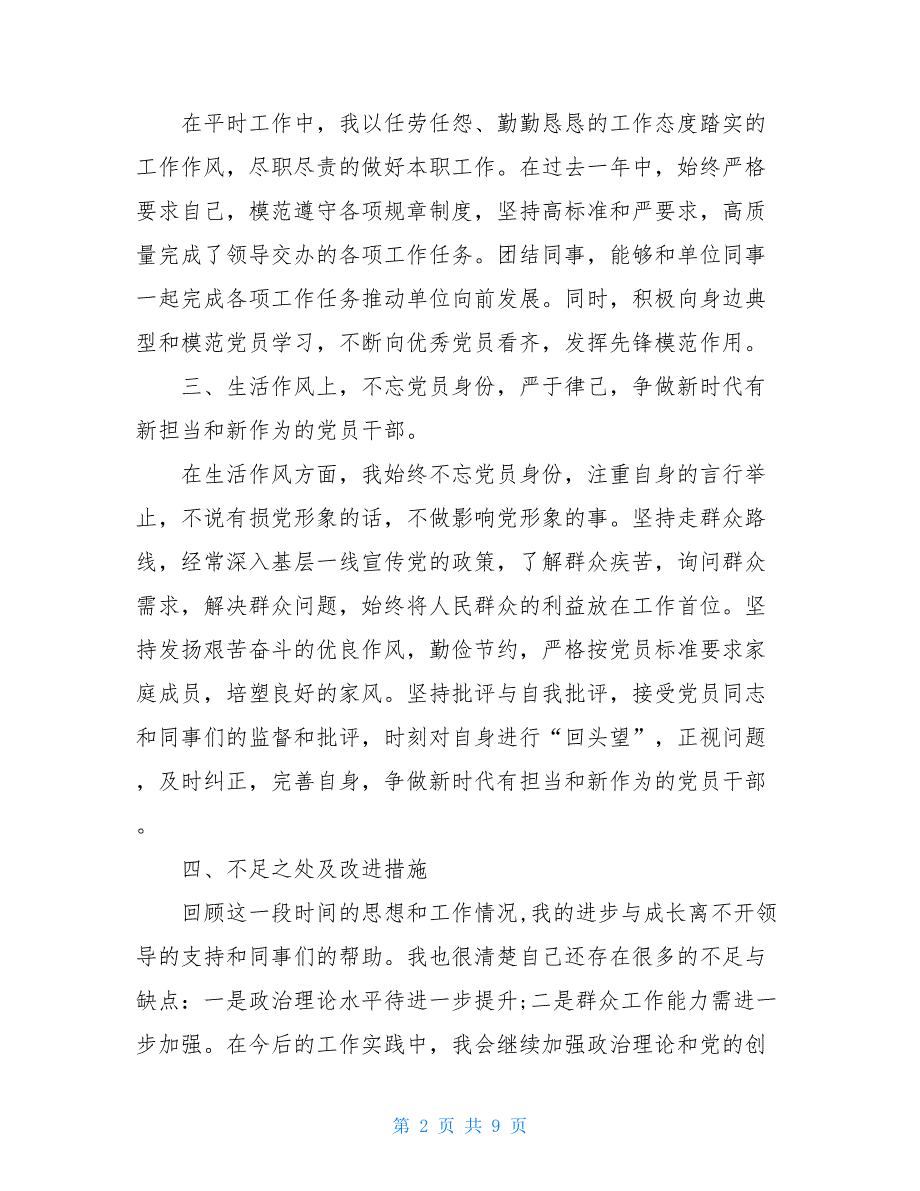 在平时工作中，我以任劳任怨、勤勤恳恳的工作态度踏实的
工作作风，尽职尽责的做好本职工作。在过去一年中，始终严格
要求自己，模范遵守各项规章制度，坚持高标准和严要求，高质
量完成了领导交办的各项工作任务。团结同事，能够和单位同事
一起完成各项工作任务推动单位向前发展。同时，积极向身边典
型和模范党员学习，不断向优秀党员看齐，发挥先锋模范作用。
三、生活作风上，不忘党员身份，严于律己，争做新时代有
新担当和新作为的党员干部。
在生活作风方面，我始终不忘党员身份，注重自身的言行举
止，不说有损党形象的话，不做影响党形象的事。坚持走群众路
线，经常深入基层一线宣传党的政策，了解群众疾苦，询问群众
需求，解决群众问题，始终将人民群众的利益放在工作首位。坚
持发扬艰苦奋斗的优良作风，勤俭节约，严格按党员标准要求家
庭成员，培塑良好的家风。坚持批评与自我批评，接受党员同志
和同事们的监督和批评，时刻对自身进行“回头望”，正视问题
，及时纠正，完善自身，争做新时代有担当和新作为的党员干部
。
四、不足之处及改进措施
回顾这一段时间的思想和工作情况,我的进步与成长离不开领
导的支持和同事们的帮助。我也很清楚自己还存在很多的不足与
缺点：一是政治理论水平待进一步提升;二是群众工作能力需进一
步加强。在今后的工作实践中，我会继续加强政治理论和党的创
第 2 页 共 9 页